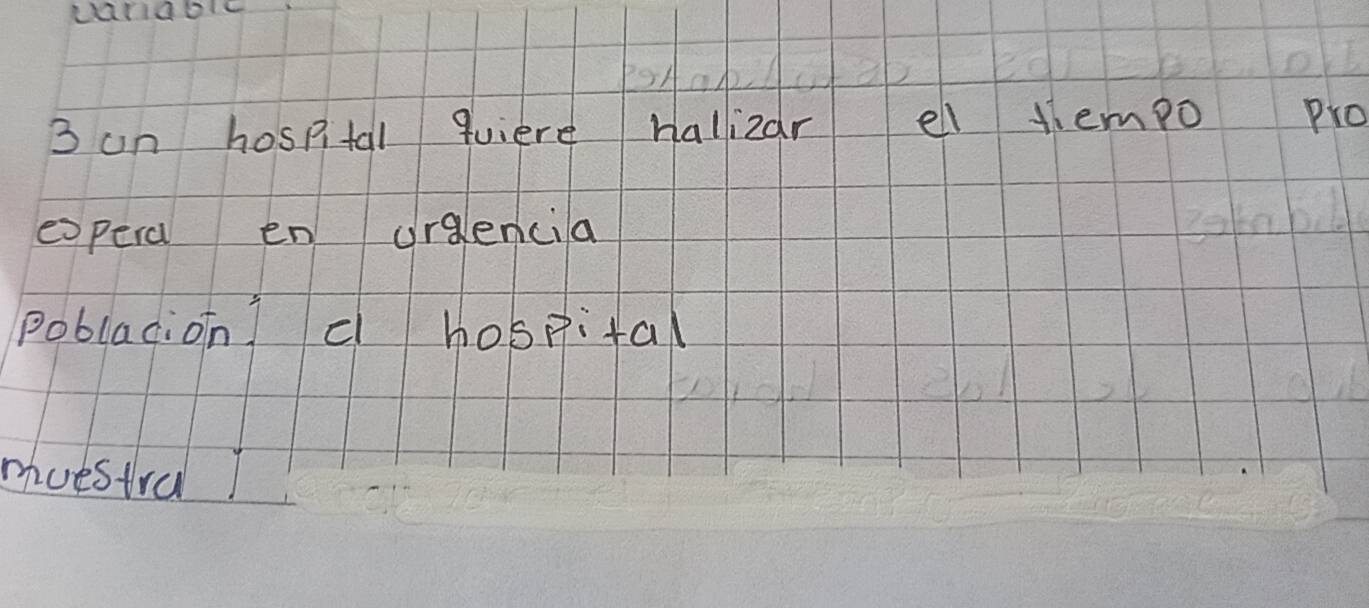 variable
3 un hospital quiere halizar el tiempo pro
espera en urgencia
Población: el hospital
muestra :